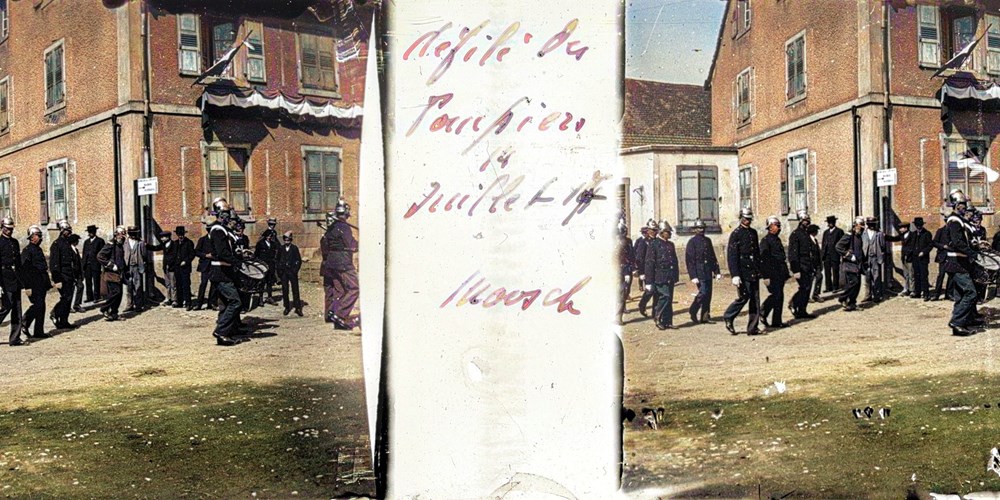 défilé des
Pompiers
14
Juillet 17
Moosch